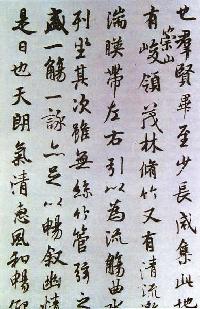 也羣賢畢至少長咸集此地
崇山
有峻領茂林脩竹又有清流激
湍暎帶左右引以為流觴曲水
列坐其次雖無絲竹管弦之
盛一觴一詠亦足以暢叙幽情
是日也天朗氣清惠風和暢仰